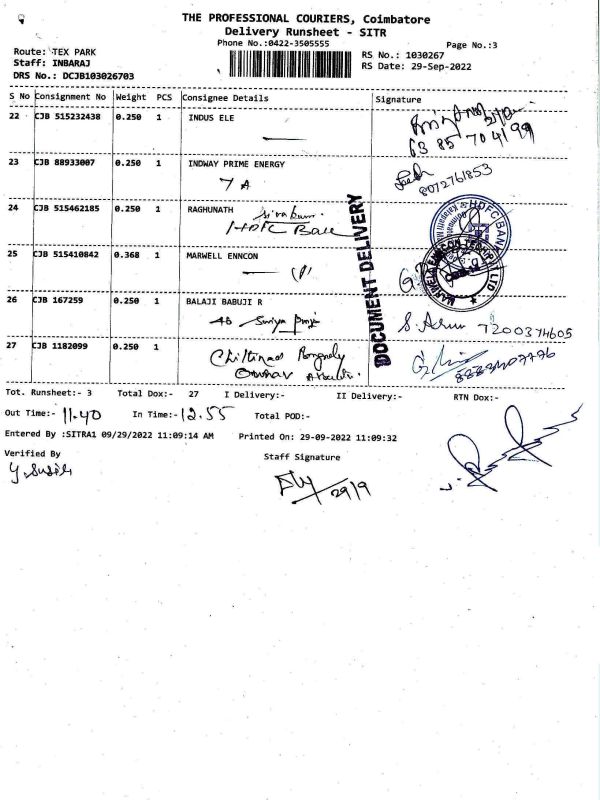 THE PROFESSIONAL COURIERS, Coimbatore
Delivery Runsheet - SITR
Phone No.:0422-3505555
Page No.:3
Route: TEX PARK
RS No.: 1030267
Staff: INBARAJ
RS Date: 29-Sep-2022
DRS No.: DCJB103026703
S No Consignment No Weight PCS Consignee Details Signature
22 CJB 515232438 0.250 1 INDUS ELE
63 85 70 41 99
23 CJB 88933007 0.250 1 INDWAY PRIME ENERGY
7 A
8072761853
24 CJB 515462185 0.250 1 RAGHUNATH
HDFC Bank
HDFC BANK
25 CJB 515410842 0.368 1 MARWELL ENNCON
MARWELL ENNCON TECH P LTD
26 CJB 167259 0.250 1 BALAJI BABUJI R
4B Suriya
S. Arun 7200374605
27 CJB 1182099 0.250 1
DOCUMENT DELIVERY
Tot. Runsheet:- 3 Total Dox:- 27 I Delivery:- II Delivery:- RTN Dox:-
Out Time:- 11.40 In Time:- 12.55 Total POD:-
Entered By :SITRA1 09/29/2022 11:09:14 AM Printed On: 29-09-2022 11:09:32
Verified By Staff Signature
29/9